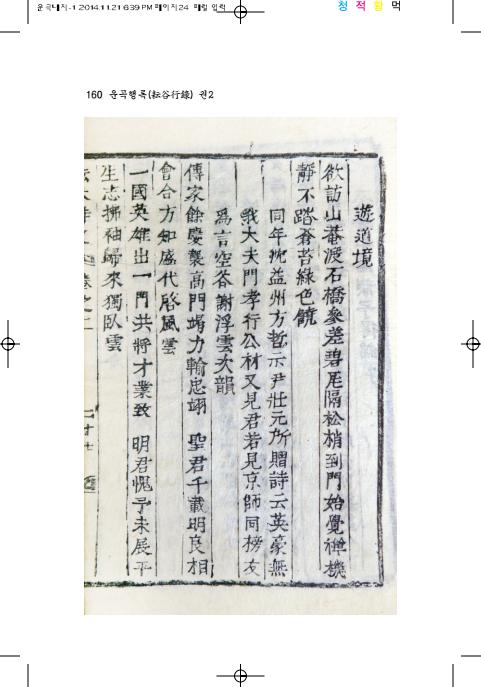 운곡내지-1 2014.11.21 6:39 PM 페이지24 매킬 입력
청 적 황 먹
160 운곡행록(耘谷行錄) 권2
遊道境
欲訪山菴渡石橋參差碧瓦隔松梢到門始覺禪機
靜不踏蒼苔綠色饒
同年沈益州方哲示尹壯元所贈詩云英豪無
我大夫門孝行公材又見君若見京師同榜友
爲言空谷謝浮雲次韻
傳家餘慶襲高門竭力輸忠翊 聖君千載明良相
會合方知盛代啓風雲
一國英雄出一門共將才業致 明君愧予未展平
生志拂袖歸來獨臥雲
卷之二